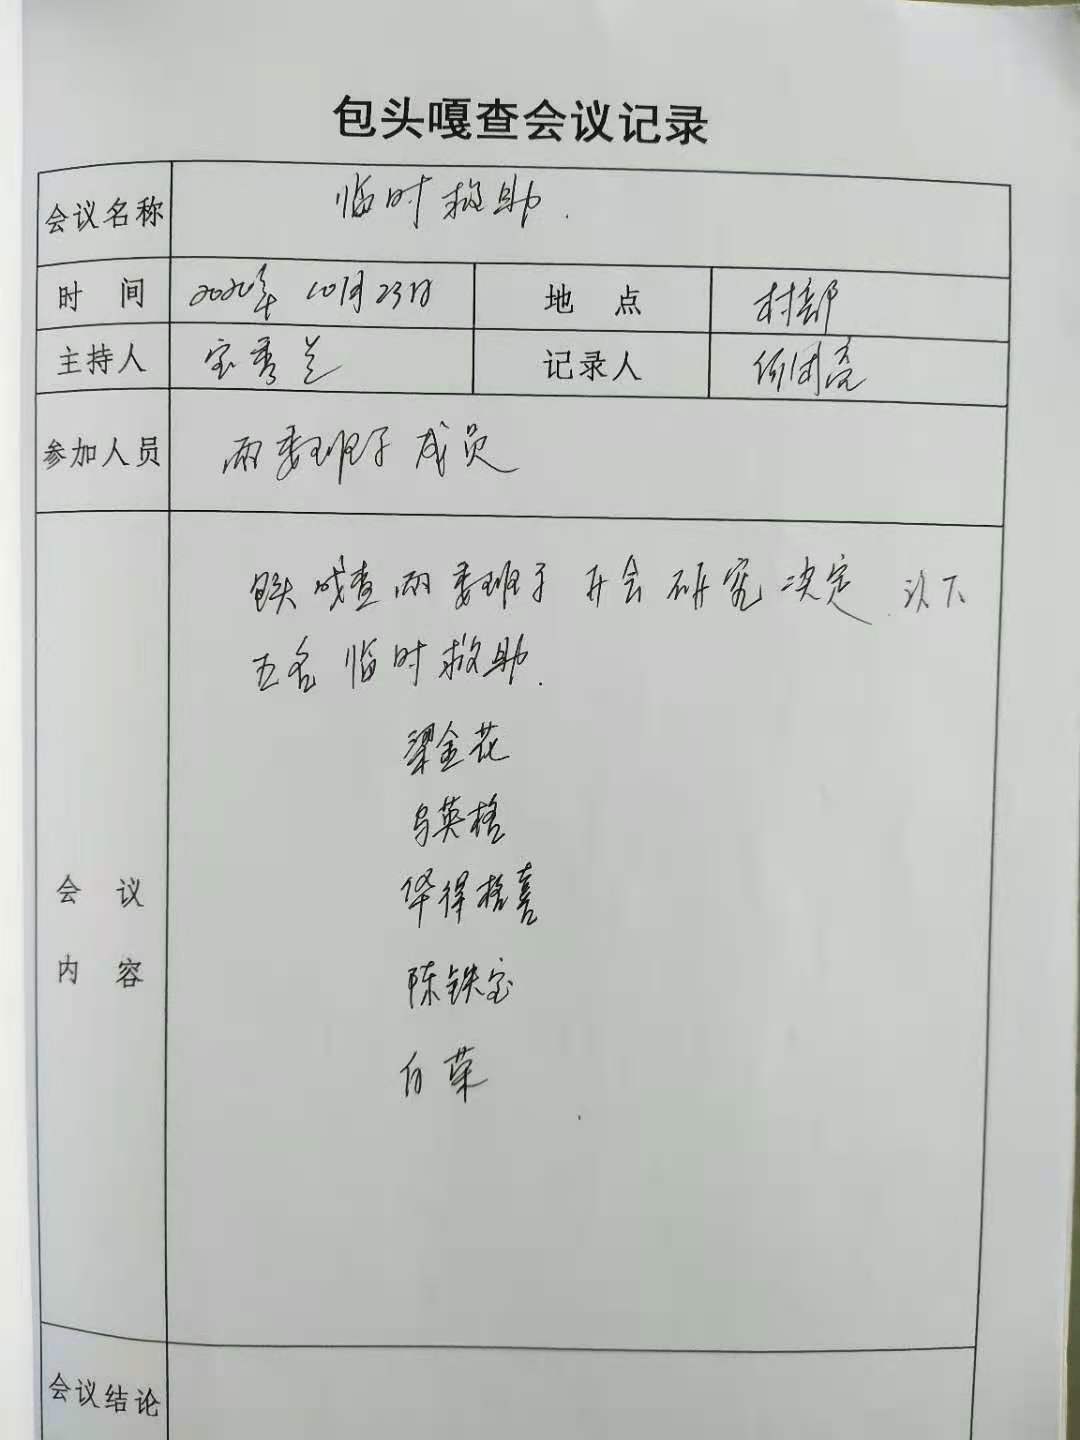 包头嘎查会议记录
会议名称 临时救助.
时 间 2020年 10月23日 地 点 村部
主持人 宝秀兰 记录人
参加人员 两委班子成员
包头嘎查两委班子开会研究决定 以下
五名临时救助.
梁金花
乌英格
华得格喜
陈铁宝
白荣
会 议
内 容
会议结论